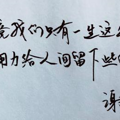 竟我们只有一生这么
用力给人间留下些
谢